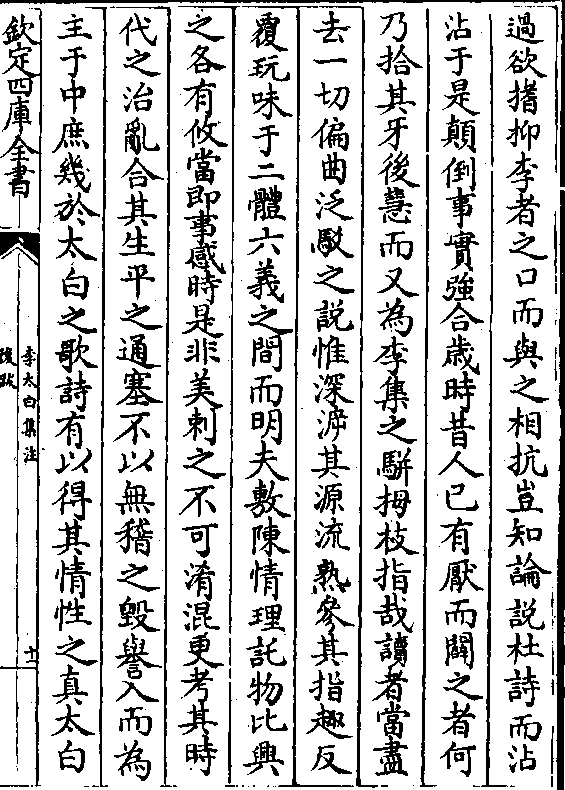 過欲揩抑李者之口而與之相抗豈知論說杜詩而沾
沾于是顛倒事實強合歳時昔人已有厭而闢之者何
乃拾其牙後慧而又為李集之駢拇枝指哉讀者當盡
去一切偏曲泛駁之說惟深泝其源流熟參其指趣反
覆玩味于二體六義之間而明夫敷陳情理託物比興
之各有攸當即事感時是非美刺之不可淆混更考其時
代之治亂合其生平之通塞不以無稽之毀譽入而為
主于中庶幾於太白之歌詩有以得其情性之真太白
欽定四庫全書
李太白集注
後跋
十一